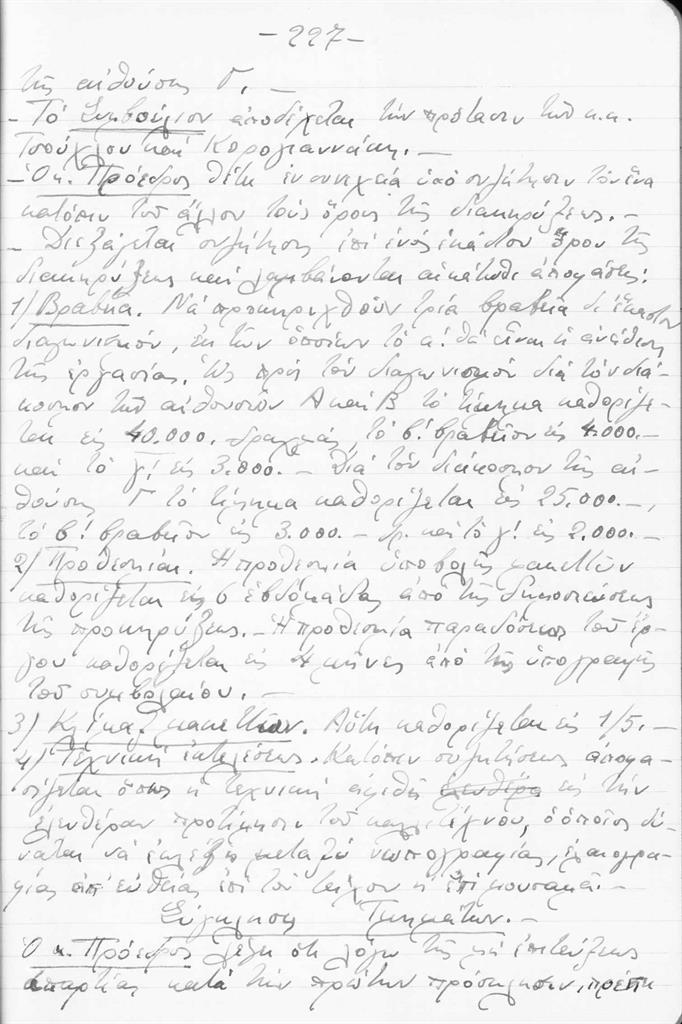 -227-
τῆς αἰθούσης Γ. -
- Τὸ Συμβούλιον ἀποδέχεται τὴν πρότασιν τῶν κ.κ.
Τσούχλου καὶ Καρογιαννάκη. -
- Ὁ κ. Πρόεδρος θέτει ἐν συνεχείᾳ ὑπὸ συζήτησιν τὸν ἕνα
κατόπιν τοῦ ἄλλου τοὺς ὅρους τῆς διακηρύξεως. -
- Διεξάγεται συζήτησις ἐπὶ ἑνὸς ἑκάστου ὅρου τῆς
διακηρύξεως καὶ λαμβάνονται αἱ κάτωθι ἀποφάσεις:
1) Βραβεῖα. Νὰ προκηρυχθοῦν τρία βραβεῖα δι' ἕκαστον
διαγωνισμόν, ἐκ τῶν ὁποίων τὸ α! θὰ εἶναι ἡ ἀνάθεσις
τῆς ἐργασίας. Ὡς πρὸς τὸν διαγωνισμὸν διὰ τὸν διά-
κοσμον τῶν αἰθουσῶν Α καὶ Β τὸ τίμημα καθορίζε-
ται εἰς 40.000. δραχμάς, τὸ β! βραβεῖον εἰς 4.000.-
καὶ τὸ γ! εἰς 3.000. - Διὰ τὸν διάκοσμον τῆς αἰ-
θούσης Γ τὸ τίμημα καθορίζεται εἰς 25.000. -,
τὸ β! βραβεῖον εἰς 3.000. - δρ. καὶ τὸ γ! εἰς 2.000. -
2) Προθεσμίαι. Ἡ προθεσμία ὑποβολῆς μακεττῶν
καθορίζεται εἰς 6 ἑβδομάδας ἀπὸ τῆς δημοσιεύσεως
τῆς προκηρύξεως. - Ἡ προθεσμία παραδόσεως τοῦ ἔρ-
γου καθορίζεται εἰς 4 μῆνες ἀπὸ τῆς ὑπογραφῆς
τοῦ συμβολαίου. -
3) Κλῖμαξ μακεττῶν. Αὕτη καθορίζεται εἰς 1/5. -
4) Τεχνικὴ ἐκτελέσεως. Κατόπιν συζητήσεως ἀποφα-
σίζεται ὅπως ἡ τεχνικὴ ἀφεθῇ ἐλευθέρα εἰς τὴν
ἐλευθέραν προτίμησιν τοῦ καλλιτέχνου, ὁ ὁποῖος δύ-
ναται νὰ ἐκλέξῃ μεταξὺ νωπογραφίας, ἐλαιογρα-
φίας ἀπ' εὐθείας ἐπὶ τοῦ τοίχου ἢ ἐπὶ μουσαμᾶ. -
Σύγκλησις Τμημάτων. -
Ὁ κ. Πρόεδρος λέγει ὅτι λόγῳ τῆς μὴ ἐπιτεύξεως
ἀπαρτίας κατὰ τὴν πρώτην πρόσκλησιν, πρέπει